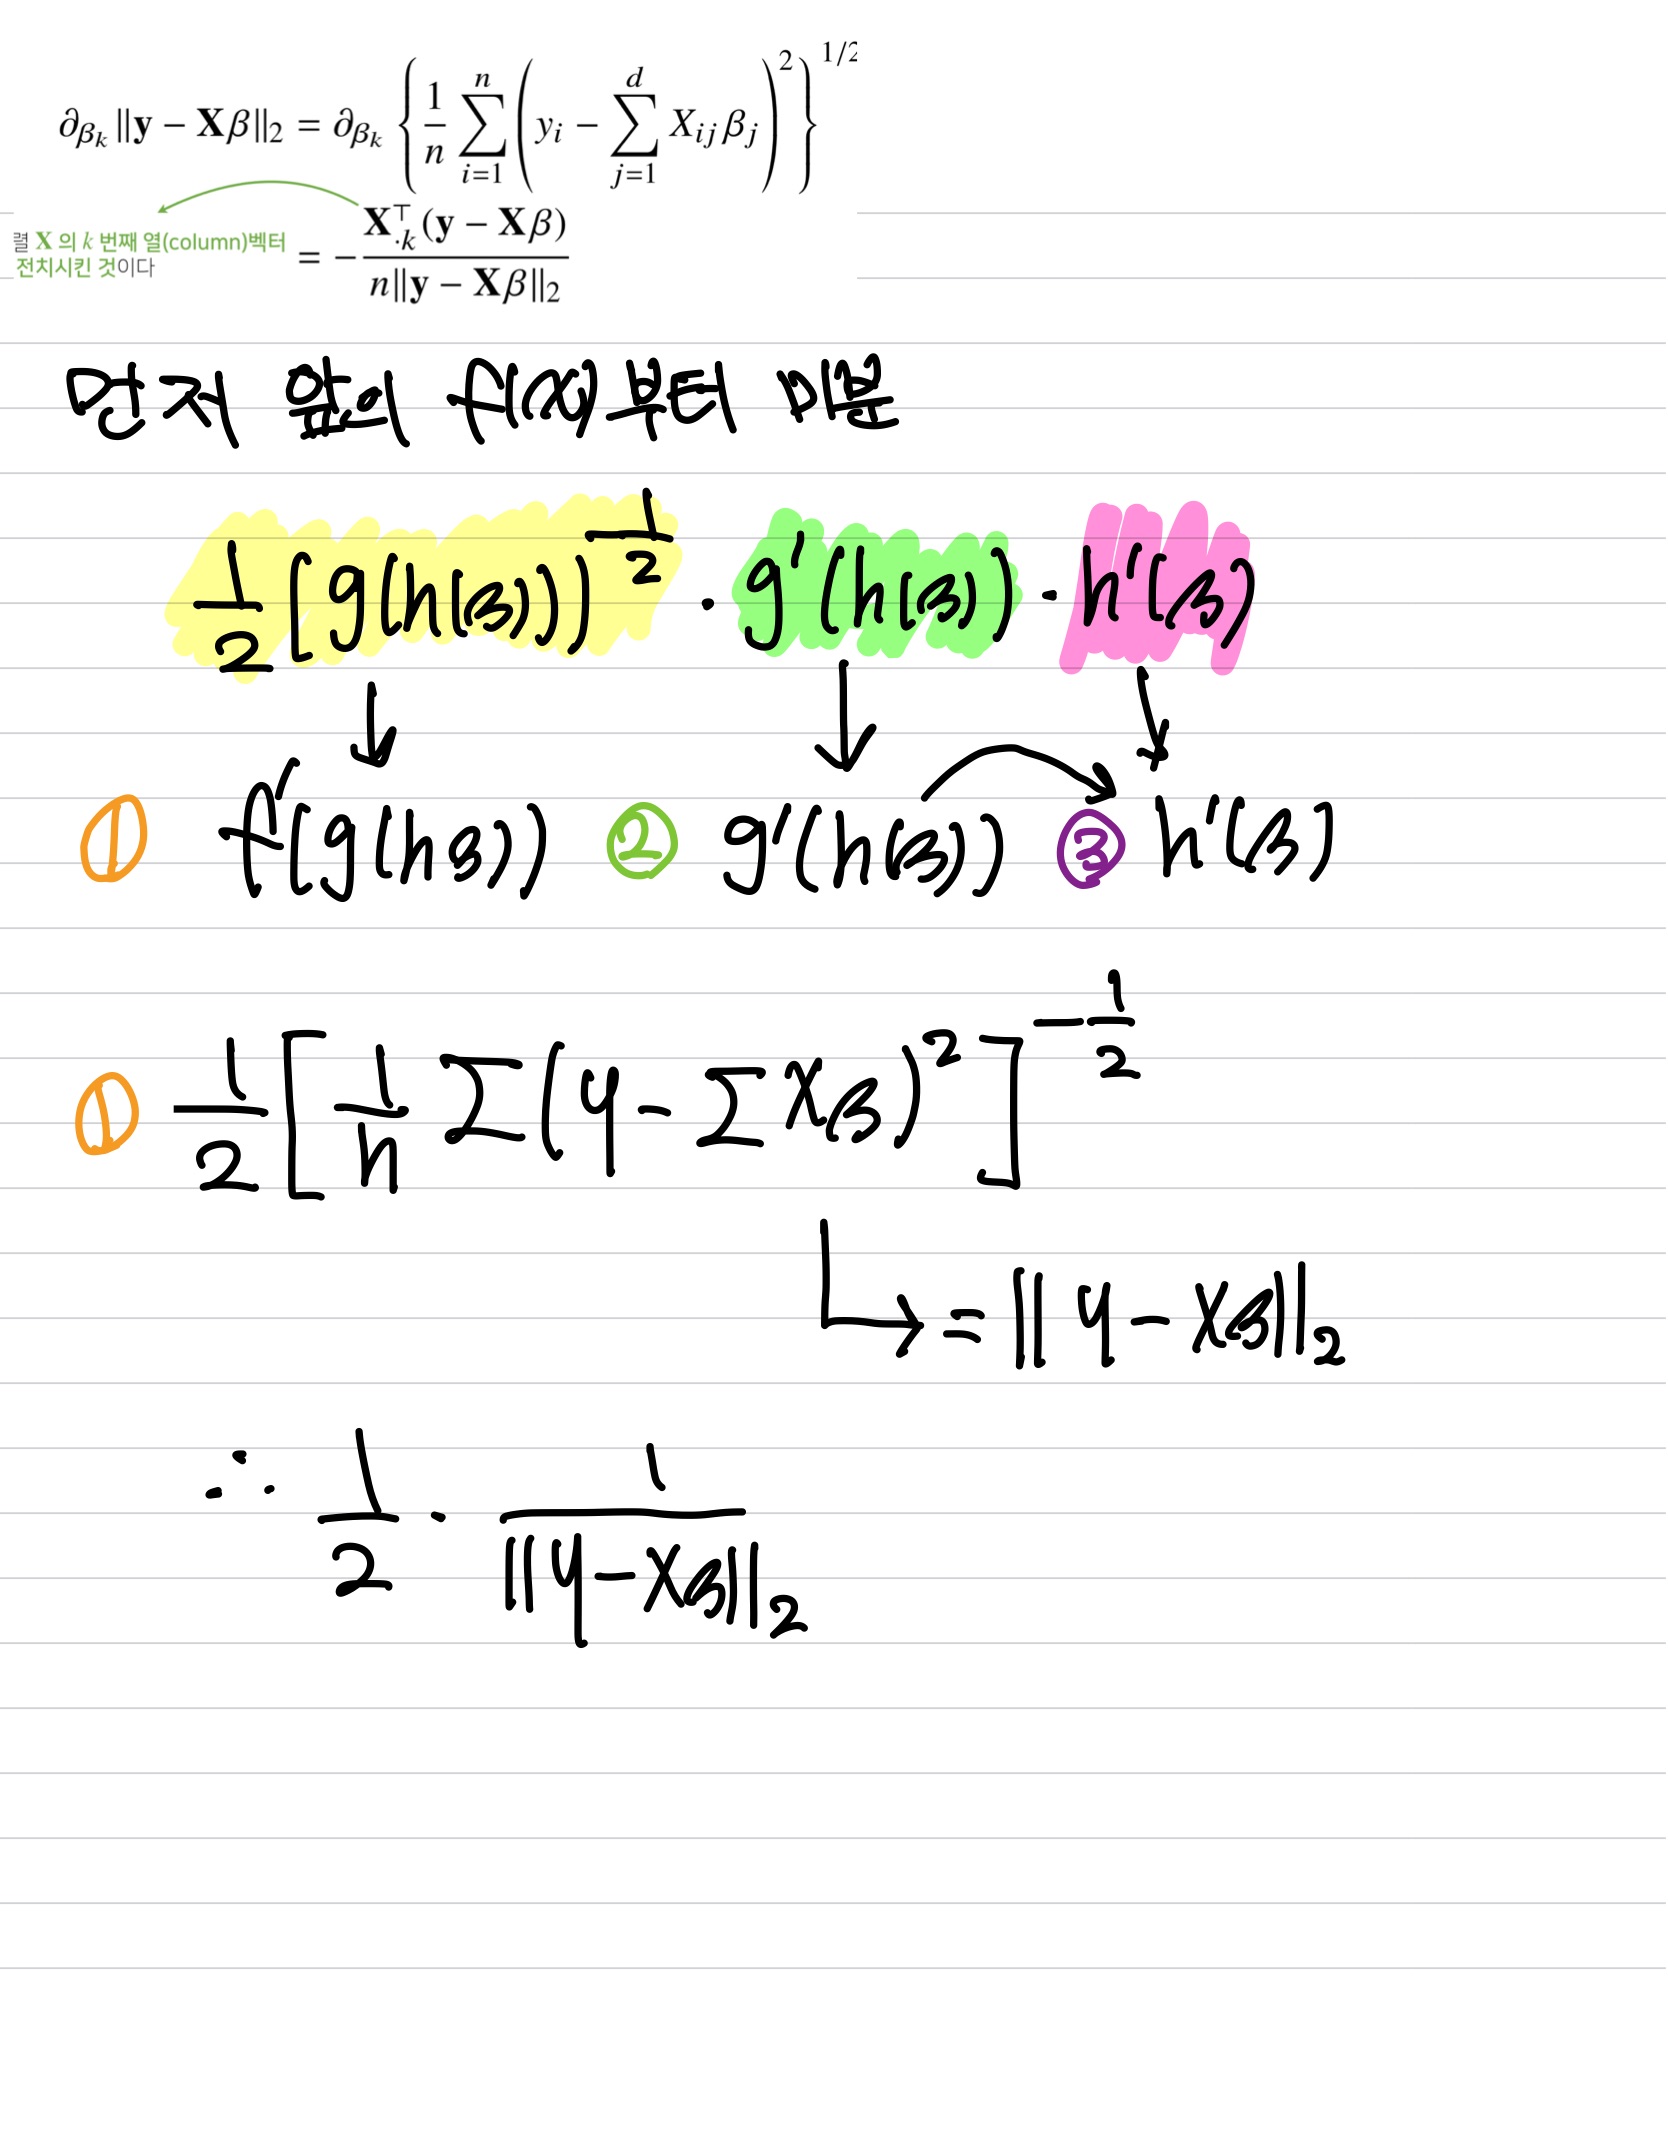 ∂_{β_k} ‖y − Xβ‖₂ = ∂_{β_k} { 1/n ∑_{i=1}^{n} ( y_i − ∑_{j=1}^{d} X_{ij} β_j )² }^{1/2}
= − X_{·k}^⊤ (y − Xβ) / n‖y − Xβ‖₂
렬 X 의 k 번째 열(column)벡터
전치시킨 것이다
먼저 앞의 f(x)부터 미분
1/2 [g(h(β))]^{-1/2} · g'(h(β)) · h'(β)
① f'(g(hβ)) ② g'(h(β)) ③ h'(β)
① 1/2 [ 1/n Σ(y − ΣXβ)² ]^{-1/2}
= ‖y − Xβ‖₂
∴ 1/2 · 1/‖y − Xβ‖₂